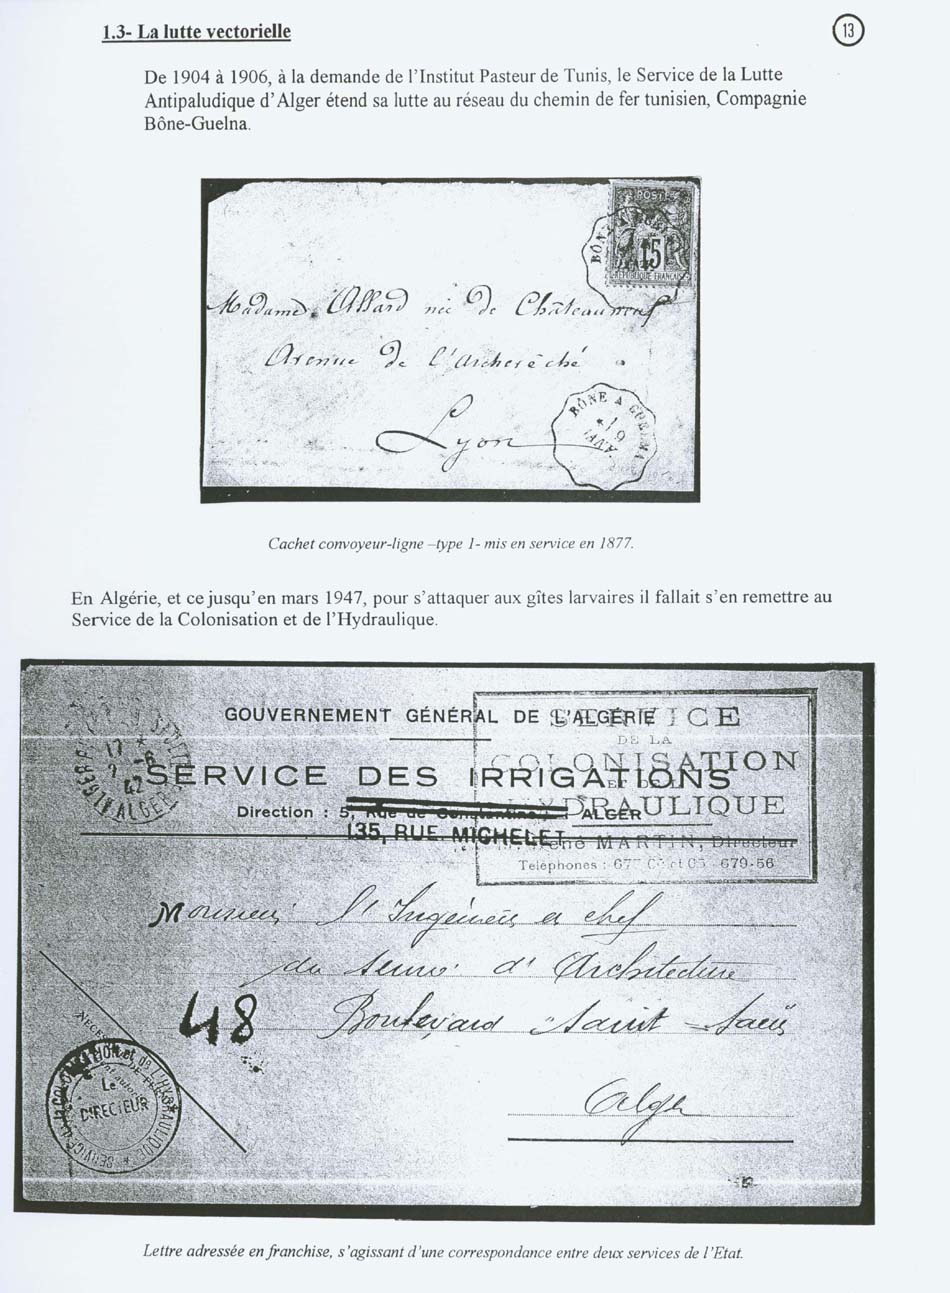 1.3- La lutte vectorielle
13
De 1904 à 1906, à la demande de l'Institut Pasteur de Tunis, le Service de la Lutte
Antipaludique d'Alger étend sa lutte au réseau du chemin de fer tunisien, Compagnie
Bône-Guelna.
POSTES
15
REPUBLIQUE FRANCAISE
BÔNE A GUEL
Madame Allard née de Châteauneuf
Avenue de l'Archevêché
Lyon
BÔNE A GUELMA
19
JANV.
Cachet convoyeur-ligne –type 1- mis en service en 1877.
En Algérie, et ce jusqu'en mars 1947, pour s'attaquer aux gîtes larvaires il fallait s'en remettre au
Service de la Colonisation et de l'Hydraulique.
GOUVERNEMENT GÉNÉRAL DE L'ALGÉRIE
SERVICE
DE LA
COLONISATION
ET DE
L'HYDRAULIQUE
René MARTIN, Directeur
Téléphones : 679-56
SERVICE DES IRRIGATIONS
Direction : 5, Rue de Constantine - ALGER
135, RUE MICHELET
17
42
ALGER
Monsieur l'Ingénieur en chef
du service d'Architecture
Boulevard Saint-Saëns
Alger
48
SERVICE de la COLONISATION et de l'HYDRAULIQUE
Le
DIRECTEUR
Lettre adressée en franchise, s'agissant d'une correspondance entre deux services de l'Etat.